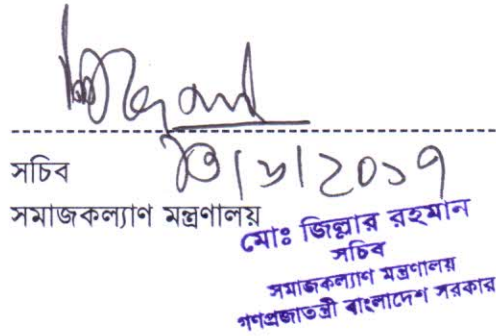 সচিব
সমাজকল্যাণ মন্ত্রণালয়
মোঃ জিল্লার রহমান
সচিব
সমাজকল্যাণ মন্ত্রণালয়
গণপ্রজাতন্ত্রী বাংলাদেশ সরকার